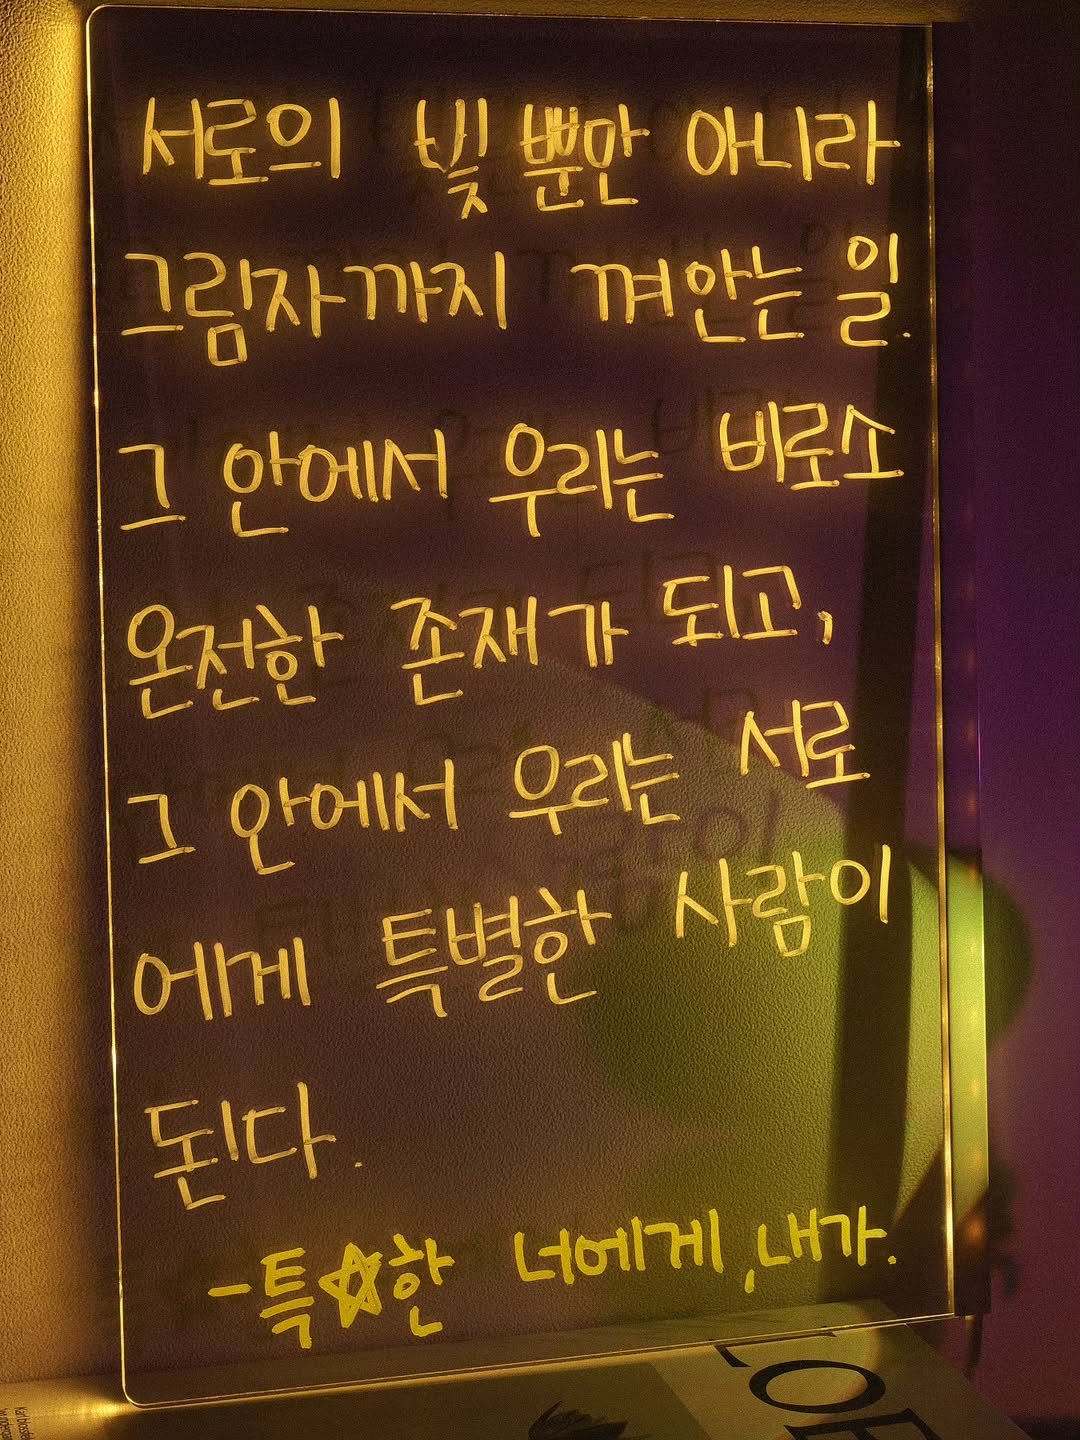 서로의 빛 뿐만 아니라
그림자까지 껴안는 일.
그 안에서 우리는 비로소
온전한 존재가 되고,
그 안에서 우리는 서로
에게 특별한 사람이
된다.
-특☆한 너에게, 내가.